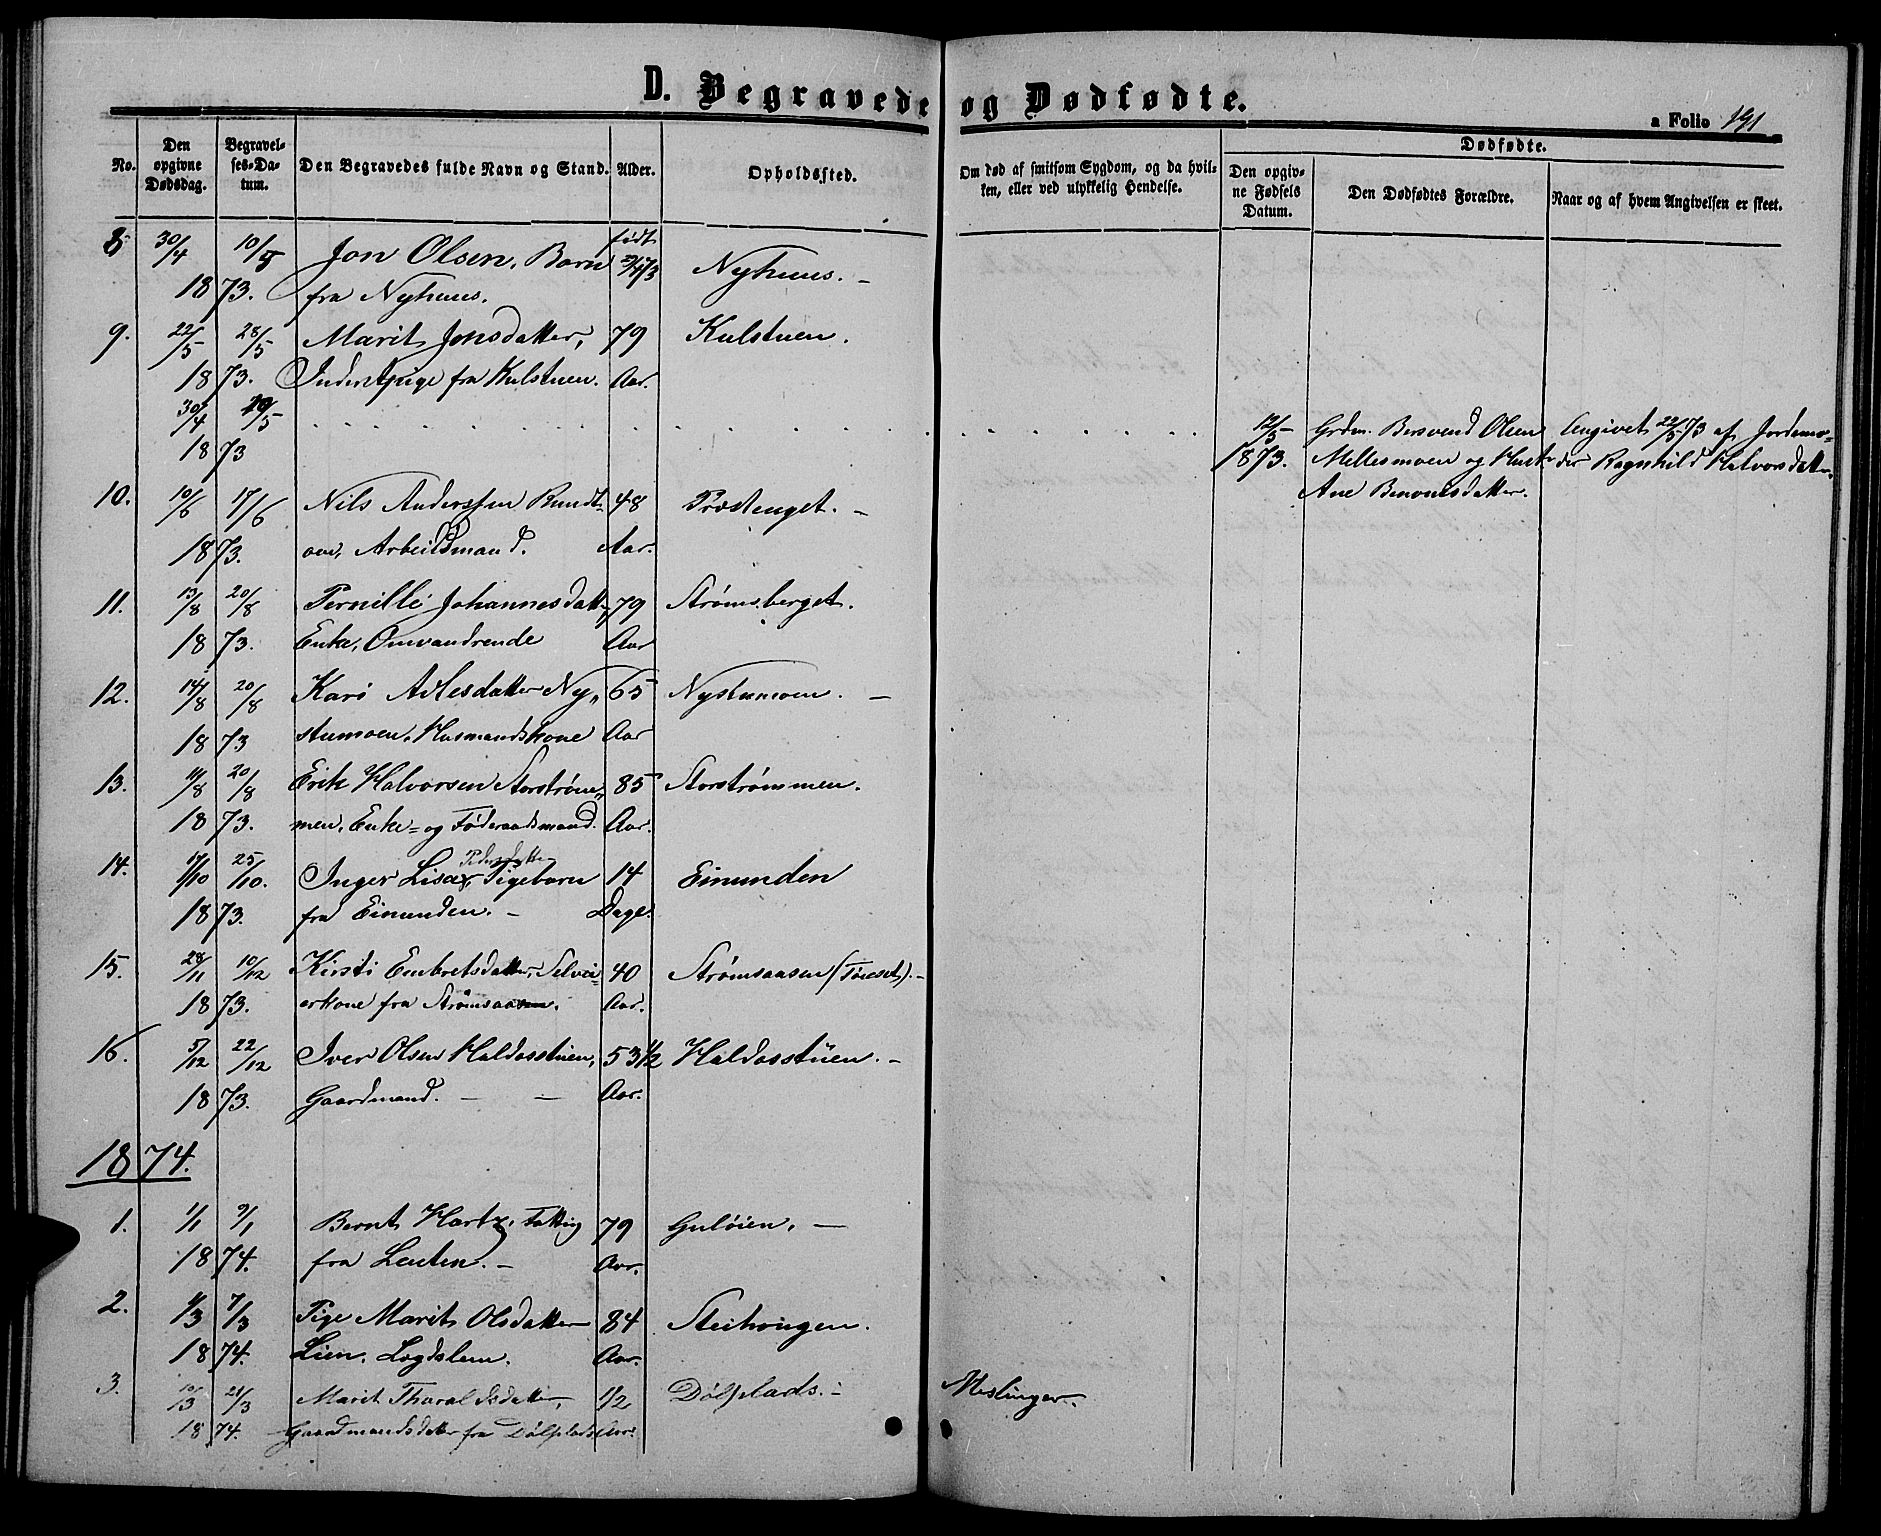 D. Begravede og Dødfødte.
a Folio 191
No.
Den opgivne Dødsdag.
Begravelses-Datum.
Den Begravedes fulde Navn og Stand.
Alder.
Opholdssted.
Om død af smitsom Sygdom, og da hvilken, eller ved ulykkelig Hendelse.
Dødfødte.
Den opgivne Fødsels Datum.
Den Dødfødtes Forældre.
Naar og af hvem Angivelsen er skeet.
8 30/4 10/5 Jon Olsen, Barn født Nyhuus. -
1873. fra Nyhuus. 73
9. 22/5 28/5 Marit Jonsdatter, 79 Kulstuen.
1873. Inderstpige fra Kulstuen. Aar.
30/4 29/5 . . . . . . . . 12/5 Grdm. Bersvend Olsen Angivet 22/5 73 af Jordemo-
1873 1873. Mellesmoen og Hustr der Ragnhild Halvorsdatter.
Ane Benonisdatter.
10. 10/6 17/6 Nils Anderssen Rundt- 48 Præstenget. -
1873. oen, Arbeidsmand. Aar.
11. 13/8 20/8 Pernille Johannesdatt 79 Strømsberget.
1873. Enke, Omvandrende Aar
12. 14/8 20/8 Kari Atlesdatter Ny- 65 Nystumoen. -
1873 stumoen. Husmandskone Aar
13. 11/8 20/8 Erik Halvorsen Storstrøm- 85 Storstrømmen.
1873. men, Enke- og Føderaadsmand. Aar.
Pedersdatter
14. 17/10 25/10. Inger Lisa, Pigebarn 14 Einunden
1873. fra Einunden. - Dage.
15. 28/11 10/12 Kirsti Embretsdatter, Selvei- 40 Strømsaasen (Tønset). -
1873. erkone fra Strømsaasen. Aar.
16. 5/12 22/12 Iver Olsen Haldosstuen, 53 1/2 Haldosstuen. -
1873. Gaardmand. - - Aar.
1874.
1. 1/1 9/1 Bernt Hartz, Fattig 79 Guløien. -
1874. fra Leuten. - Aar.
2. 1/3 7/3 Pige Marit Olsdatter 84 Steihongen.
1874. Lien. Lægdslem. Aar.
3. 10/3 21/3 Marit Tharaldsdatter, 1/2 Dølplads. - Meslinger.
1874. Gaardmandsdatter fra Dølplads Aar.